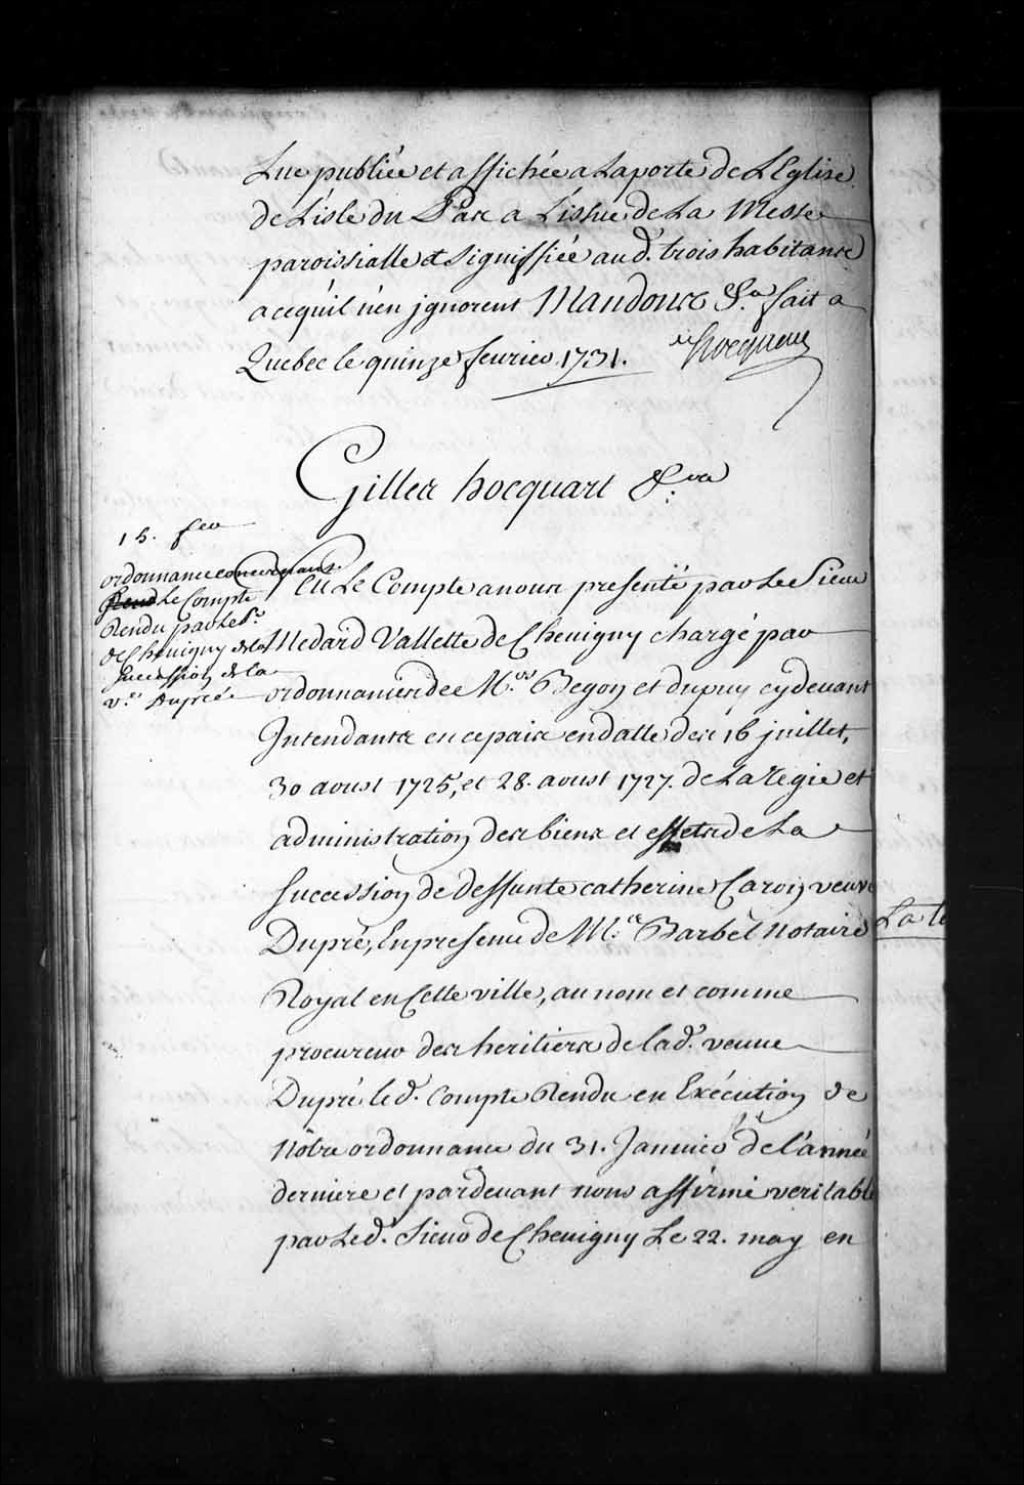 Lue publiée et affichée a La porte de L'Eglise
de L'isle du Pas a L'issue de La Messe
paroissialle et signiffiée aud. trois habitans
a cequ'il n'en jgnorent Mandons &.a fait a
Quebec le quinze fevrier 1731. Hocquart
Gilles hocquart &.ra
15. fev
ordonnance concernant
Le Compte
Rendu par Le S.r
de Chevigny de la
succession de la
v.ve Dupré
Veu Le Compte a nous presenté par Le Sieur
Medard Vallette de Chevigny chargé par
ordonnances de M.rs Begon et dupuy cydevant
Intendants en ce pais en datte des 16 juillet,
30 aoust 1725, et 28. aoust 1727. de La regie et
administration des biens et effets de La
Succession de deffunte catherine Caron veuve
Dupré, En presence de M.e Barbel Notaire
Royal en Cette ville, au nom et comme
procureur des heritiers de lad. veuve
Dupré led. Compte Rendu en Exécution de
Nôtre ordonnance du 31. Janvier de l'année
derniere et pardevant nous affirmé veritable
par Led. Sieur de Chevigny Le 22. may en
La